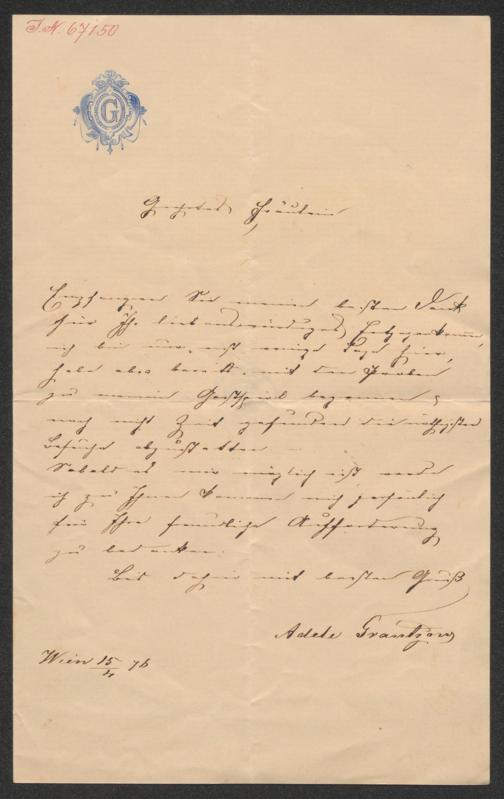 I.N. 67150
G
Geehrtes Fräulein
Empfangen Sie meinen besten Dank
für Ihr liebenswürdiges Entgegenkommen,
ich bin nur erst wenige Tage hier,
habe aber bereits mit den Proben
zu meinem Gastspiel begonnen &
noch nicht Zeit gefunden die nöthigsten
Besuche abzustatten.
Sobald es mir möglich ist werde
ich zu Ihnen kommen mich persönlich
für Ihre freundliche Aufforderung
zu bedanken.
Bis dahin mit bestem Gruß
Adele Grantzow
Wien 15/4 76